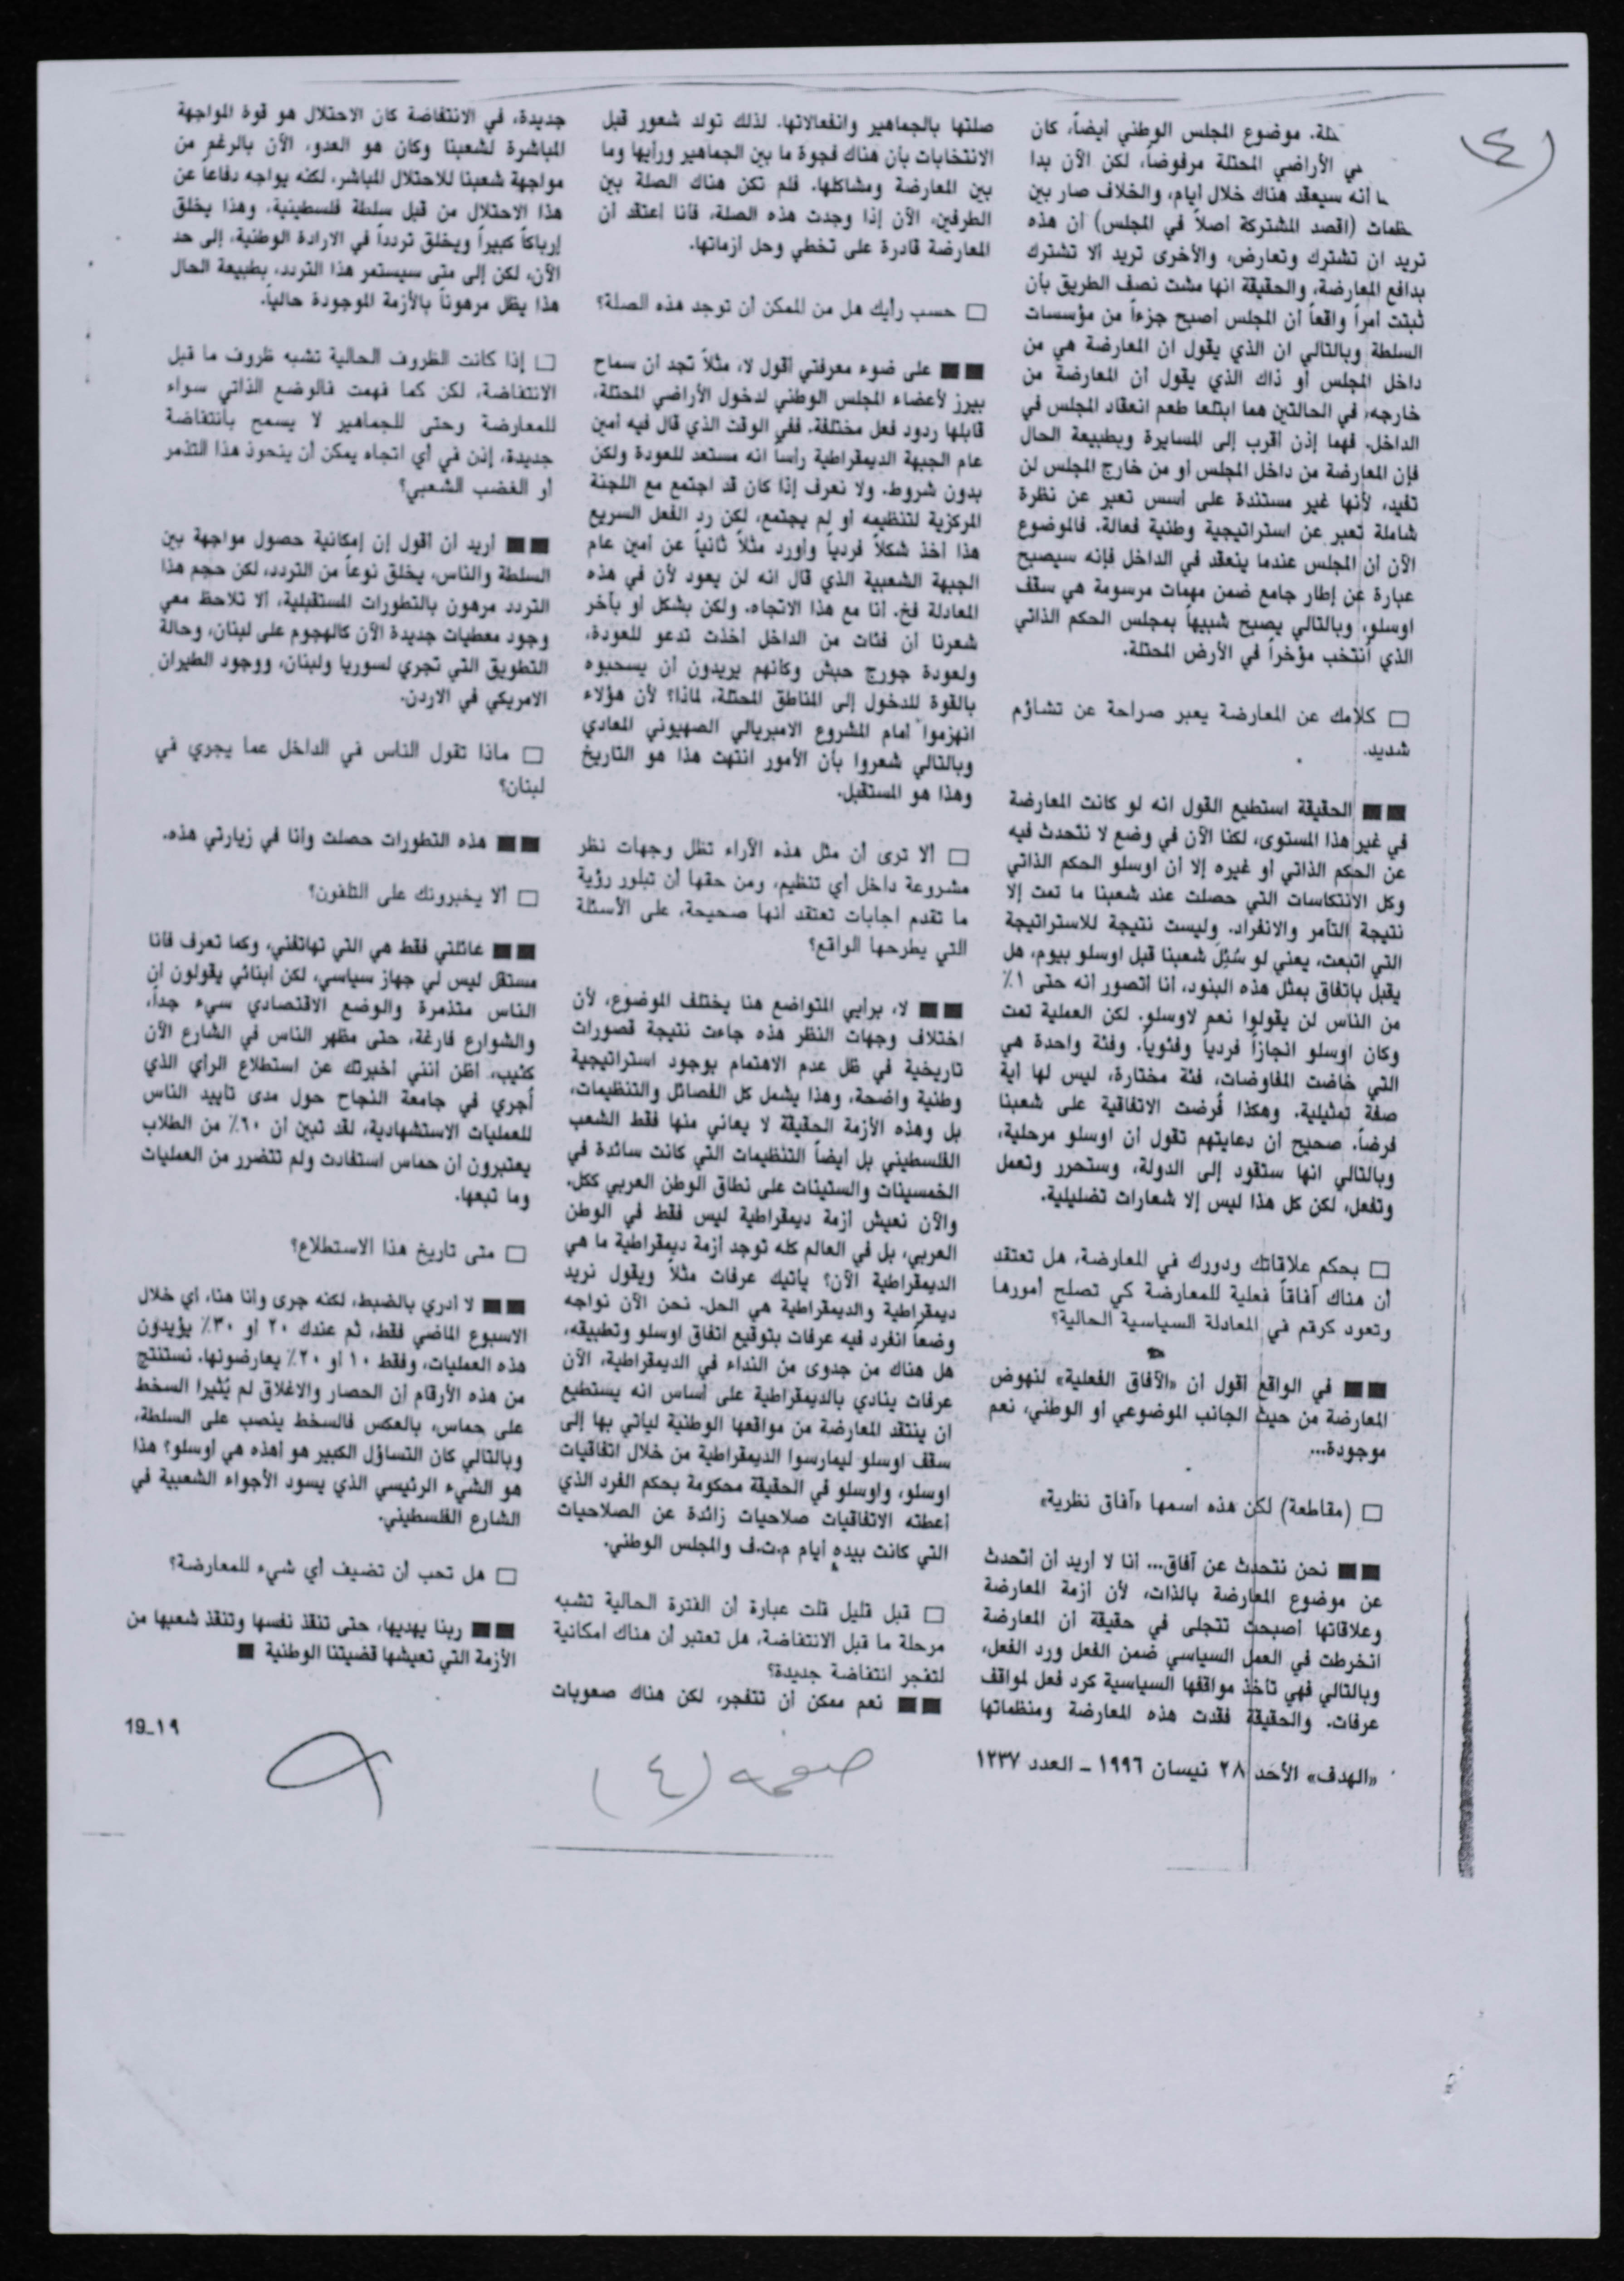 (٤
ـتلة. موضوع المجلس الوطني أيضاً، كان
في الأراضي المحتلة مرفوضاً، لكن الآن بدا
ـا أنه سيعقد هناك خلال أيام، والخلاف صار بين
ـظمات (اقصد المشتركة أصلاً في المجلس) أن هذه
تريد ان تشترك وتعارض، والأخرى تريد ألا تشترك
بدافع المعارضة، والحقيقة انها مشت نصف الطريق بأن
ثبتت أمراً واقعاً أن المجلس أصبح جزءاً من مؤسسات
السلطة وبالتالي ان الذي يقول ان المعارضة هي من
داخل المجلس أو ذاك الذي يقول أن المعارضة من
خارجه، في الحالتين هما ابتلعا طعم انعقاد المجلس في
الداخل. فهما إذن أقرب إلى المسايرة وبطبيعة الحال
فإن المعارضة من داخل المجلس أو من خارج المجلس لن
تفيد، لأنها غير مستندة على أسس تعبر عن نظرة
شاملة تعبر عن استراتيجية وطنية فعالة. فالموضوع
الآن أن المجلس عندما ينعقد في الداخل فإنه سيصبح
عبارة عن إطار جامع ضمن مهمات مرسومة هي سقف
اوسلو، وبالتالي يصبح شبيهاً بمجلس الحكم الذاتي
الذي أنتخب مؤخراً في الأرض المحتلة.
□ كلامك عن المعارضة يعبر صراحة عن تشاؤم
شديد.
■■ الحقيقة استطيع القول انه لو كانت المعارضة
في غير هذا المستوى، لكنا الآن في وضع لا نتحدث فيه
عن الحكم الذاتي أو غيره إلا أن اوسلو الحكم الذاتي
وكل الانتكاسات التي حصلت عند شعبنا ما تمت إلا
نتيجة التآمر والانفراد. وليست نتيجة للاستراتيجة
التي اتبعت، يعني لو سُئِلَ شعبنا قبل اوسلو بيوم، هل
يقبل باتفاق بمثل هذه البنود، أنا أتصور أنه حتى ١٪
من الناس لن يقولوا نعم لاوسلو. لكن العملية تمت
وكان اوسلو انجازاً فردياً وفئوياً. وفئة واحدة هي
التي خاضت المفاوضات، فئة مختارة، ليس لها أية
صفة تمثيلية. وهكذا فُرضت الاتفاقية على شعبنا
فرضاً. صحيح أن دعايتهم تقول أن اوسلو مرحلية،
وبالتالي انها ستقود إلى الدولة، وستحرر وتعمل
وتفعل، لكن كل هذا ليس إلا شعارات تضليلية.
□ بحكم علاقاتك ودورك في المعارضة، هل تعتقد
أن هناك آفاقاً فعلية للمعارضة كي تصلح أمورها
وتعود كرقم في المعادلة السياسية الحالية؟
■■ في الواقع أقول أن «الآفاق الفعلية» لنهوض
المعارضة من حيث الجانب الموضوعي أو الوطني، نعم
موجودة...
□ (مقاطعة) لكن هذه اسمها «آفاق نظرية»
■■ نحن نتحدث عن آفاق... أنا لا أريد أن أتحدث
عن موضوع المعارضة بالذات، لأن أزمة المعارضة
وعلاقاتها أصبحت تتجلى في حقيقة أن المعارضة
انخرطت في العمل السياسي ضمن الفعل ورد الفعل،
وبالتالي فهي تأخذ مواقفها السياسية كرد فعل لمواقف
عرفات. والحقيقة فقدت هذه المعارضة ومنظماتها
صلتها بالجماهير وانفعالاتها. لذلك تولد شعور قبل
الانتخابات بأن هناك فجوة ما بين الجماهير ورأيها وما
بين المعارضة ومشاكلها. فلم تكن هناك الصلة بين
الطرفين، الآن إذا وجدت هذه الصلة، فأنا أعتقد أن
المعارضة قادرة على تخطي وحل أزماتها.
□ حسب رأيك هل من الممكن أن توجد هذه الصلة؟
■■ على ضوء معرفتي أقول لا، مثلاً تجد أن سماح
بيرز لأعضاء المجلس الوطني لدخول الأراضي المحتلة،
قابلها ردود فعل مختلفة. ففي الوقت الذي قال فيه أمين
عام الجبهة الديمقراطية رأساً انه مستعد للعودة ولكن
بدون شروط. ولا نعرف إذا كان قد اجتمع مع اللجنة
المركزية لتنظيمه أو لم يجتمع، لكن رد الفعل السريع
هذا أخذ شكلاً فردياً وأورد مثلاً ثانياً عن أمين عام
الجبهة الشعبية الذي قال انه لن يعود لأن في هذه
المعادلة فخ. أنا مع هذا الاتجاه. ولكن بشكل أو بآخر
شعرنا أن فئات من الداخل أخذت تدعو للعودة،
ولعودة جورج حبش وكأنهم يريدون أن يسحبوه
بالقوة للدخول إلى المناطق المحتلة، لماذا؟ لأن هؤلاء
انهزموا أمام المشروع الامبريالي الصهيوني المعادي
وبالتالي شعروا بأن الأمور انتهت هذا هو التاريخ
وهذا هو المستقبل.
□ ألا ترى أن مثل هذه الآراء تظل وجهات نظر
مشروعة داخل أي تنظيم، ومن حقها أن تبلور رؤية
ما تقدم اجابات تعتقد أنها صحيحة، على الأسئلة
التي يطرحها الواقع؟
■■ لا، برأيي المتواضع هنا يختلف الموضوع، لأن
اختلاف وجهات النظر هذه جاءت نتيجة قصورات
تاريخية في ظل عدم الاهتمام بوجود استراتيجية
وطنية واضحة، وهذا يشمل كل الفصائل والتنظيمات،
بل وهذه الأزمة الحقيقة لا يعاني منها فقط الشعب
الفلسطيني بل أيضاً التنظيمات التي كانت سائدة في
الخمسينات والستينات على نطاق الوطن العربي ككل.
والآن نعيش أزمة ديمقراطية ليس فقط في الوطن
العربي، بل في العالم كله توجد أزمة ديمقراطية ما هي
الديمقراطية الآن؟ يأتيك عرفات مثلاً ويقول نريد
ديمقراطية والديمقراطية هي الحل. نحن الآن نواجه
وضعاً انفرد فيه عرفات بتوقيع اتفاق اوسلو وتطبيقه،
هل هناك من جدوى من النداء في الديمقراطية، الآن
عرفات ينادي بالديمقراطية على أساس انه يستطيع
ان ينتقد المعارضة من مواقعها الوطنية ليأتي بها إلى
سقف اوسلو ليمارسوا الديمقراطية من خلال اتفاقيات
اوسلو، واوسلو في الحقيقة محكومة بحكم الفرد الذي
أعطته الاتفاقيات صلاحيات زائدة عن الصلاحيات
التي كانت بيده أيام م.ت.ف والمجلس الوطني.
□ قبل قليل قلت عبارة أن الفترة الحالية تشبه
مرحلة ما قبل الانتفاضة، هل تعتبر أن هناك امكانية
لتفجر انتفاضة جديدة؟
■■ نعم ممكن أن تتفجر، لكن هناك صعوبات
جديدة، في الانتفاضة كان الاحتلال هو قوة المواجهة
المباشرة لشعبنا وكان هو العدو، الآن بالرغم من
مواجهة شعبنا للاحتلال المباشر، لكنه يواجه دفاعاً عن
هذا الاحتلال من قبل سلطة فلسطينية، وهذا يخلق
إرباكاً كبيراً ويخلق تردداً في الارادة الوطنية، إلى حد
الآن، لكن إلى متى سيستمر هذا التردد، بطبيعة الحال
هذا يظل مرهوناً بالأزمة الموجودة حالياً.
□ إذا كانت الظروف الحالية تشبه ظروف ما قبل
الانتفاضة، لكن كما فهمت فالوضع الذاتي سواء
للمعارضة وحتى للجماهير لا يسمح بانتفاضة
جديدة، إذن في أي اتجاه يمكن أن يتحوذ هذا التذمر
أو الغضب الشعبي؟
■■ أريد أن أقول إن إمكانية حصول مواجهة بين
السلطة والناس، يخلق نوعاً من التردد، لكن حجم هذا
التردد مرهون بالتطورات المستقبلية، ألا تلاحظ معي
وجود معطيات جديدة الآن كالهجوم على لبنان، وحالة
التطويق التي تجري لسوريا ولبنان، ووجود الطيران
الامريكي في الاردن.
□ ماذا تقول الناس في الداخل عما يجري في
لبنان؟
■■ هذه التطورات حصلت وأنا في زيارتي هذه.
□ ألا يخبرونك على التلفون؟
■■ عائلتي فقط هي التي تهاتفني، وكما تعرف فأنا
مستقل ليس لي جهاز سياسي، لكن أبنائي يقولون أن
الناس متذمرة والوضع الاقتصادي سيء جداً،
والشوارع فارغة، حتى مظهر الناس في الشارع الآن
كئيب، أظن أنني أخبرتك عن استطلاع الرأي الذي
أُجري في جامعة النجاح حول مدى تأييد الناس
للعمليات الاستشهادية، لقد تبين أن ٦٠٪ من الطلاب
يعتبرون أن حماس استفادت ولم تتضرر من العمليات
وما تبعها.
□ متى تاريخ هذا الاستطلاع؟
■■ لا أدري بالضبط، لكنه جرى وأنا هنا، أي خلال
الاسبوع الماضي فقط، ثم عندك ٢٠ أو ٣٠٪ يؤيدون
هذه العمليات، وفقط ١٠ أو ٢٠٪ يعارضونها. نستنتج
من هذه الأرقام أن الحصار والاغلاق لم يُثيرا السخط
على حماس، بالعكس فالسخط ينصب على السلطة،
وبالتالي كان التساؤل الكبير هو أهذه هي أوسلو؟ هذا
هو الشيء الرئيسي الذي يسود الأجواء الشعبية في
الشارع الفلسطيني.
□ هل تحب أن تضيف أي شيء للمعارضة؟
■■ ربنا يهديها، حتى تنقذ نفسها وتنقذ شعبها من
الأزمة التي تعيشها قضيتنا الوطنية ■
«الهدف» الأحد ٢٨ نيسان ١٩٩٦ ـ العدد ١٢٣٧
19ـ١٩
صفحة (٤)